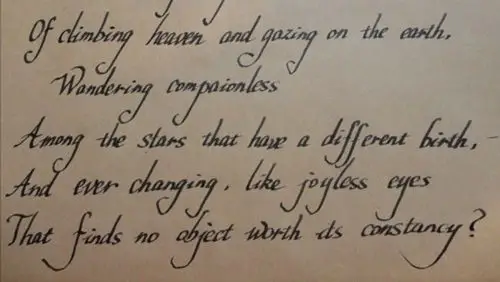 Of climbing heaven and gazing on the earth,
Wandering compaionless
Among the stars that have a different birth, -
And ever changing, like joyless eyes
That finds no object worth its constancy?